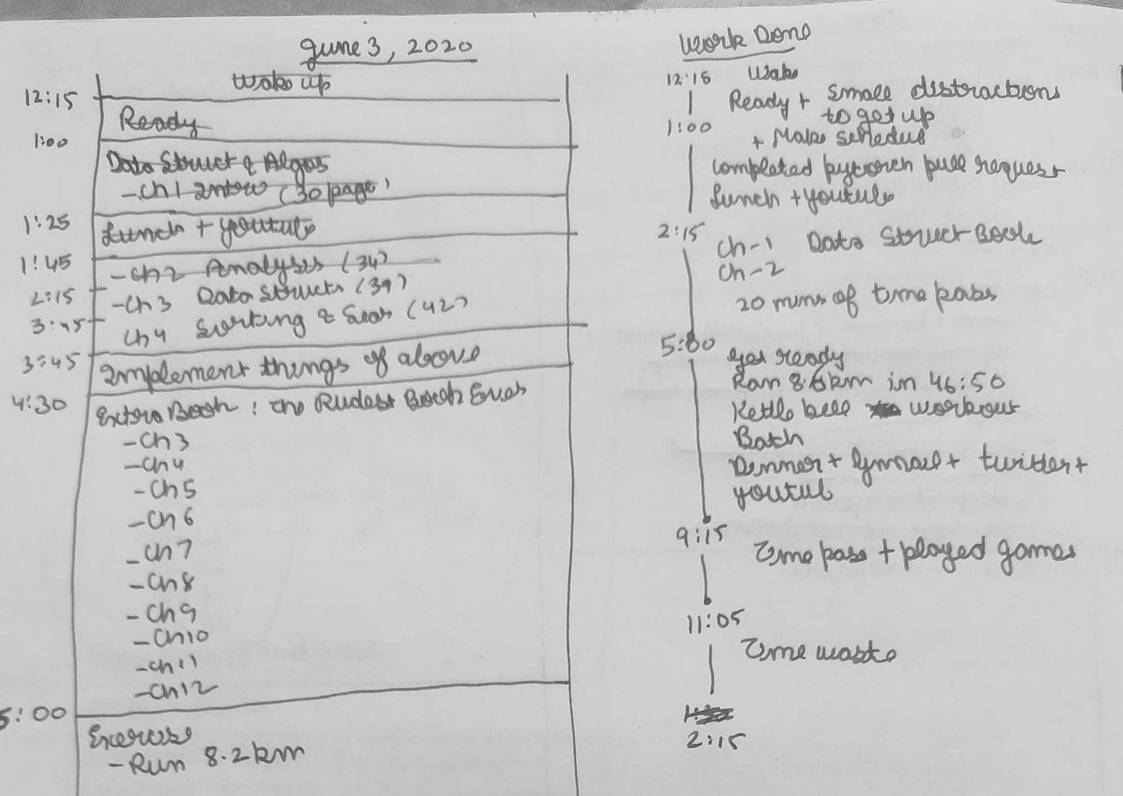 June 3, 2020
Wake up
12:15
Ready
1:00
Data Struct & Algos
-Ch1 Intro (30 page)
1:25
Lunch + youtube
1:45
-Ch2 Analysis (34)
2:15
-Ch3 Data Structs (39)
3:45
Ch4 Sorting & Sear (42)
3:45
Implement things of above
4:30
Extra Book : The Rudest Book Ever
-Ch3
-Ch4
-Ch5
-Ch6
-Ch7
-Ch8
-Ch9
-Ch10
-Ch11
-Ch12
5:00
Exercise
-Run 8.2km
Work Done
12:15 Wake
Ready + small distractions
to get up
1:00
+ Make schedule
Completed pytorch pull request
Lunch + youtube
2:15
Ch-1 Data Struct Book
Ch-2
20 mins of time pass
5:00
get ready
Ran 8.6km in 46:50
Kettle bell workout
Bath
Dinner + Gmail + twitter +
youtub
9:15
Time pass + played games
11:05
Time waste
2:15